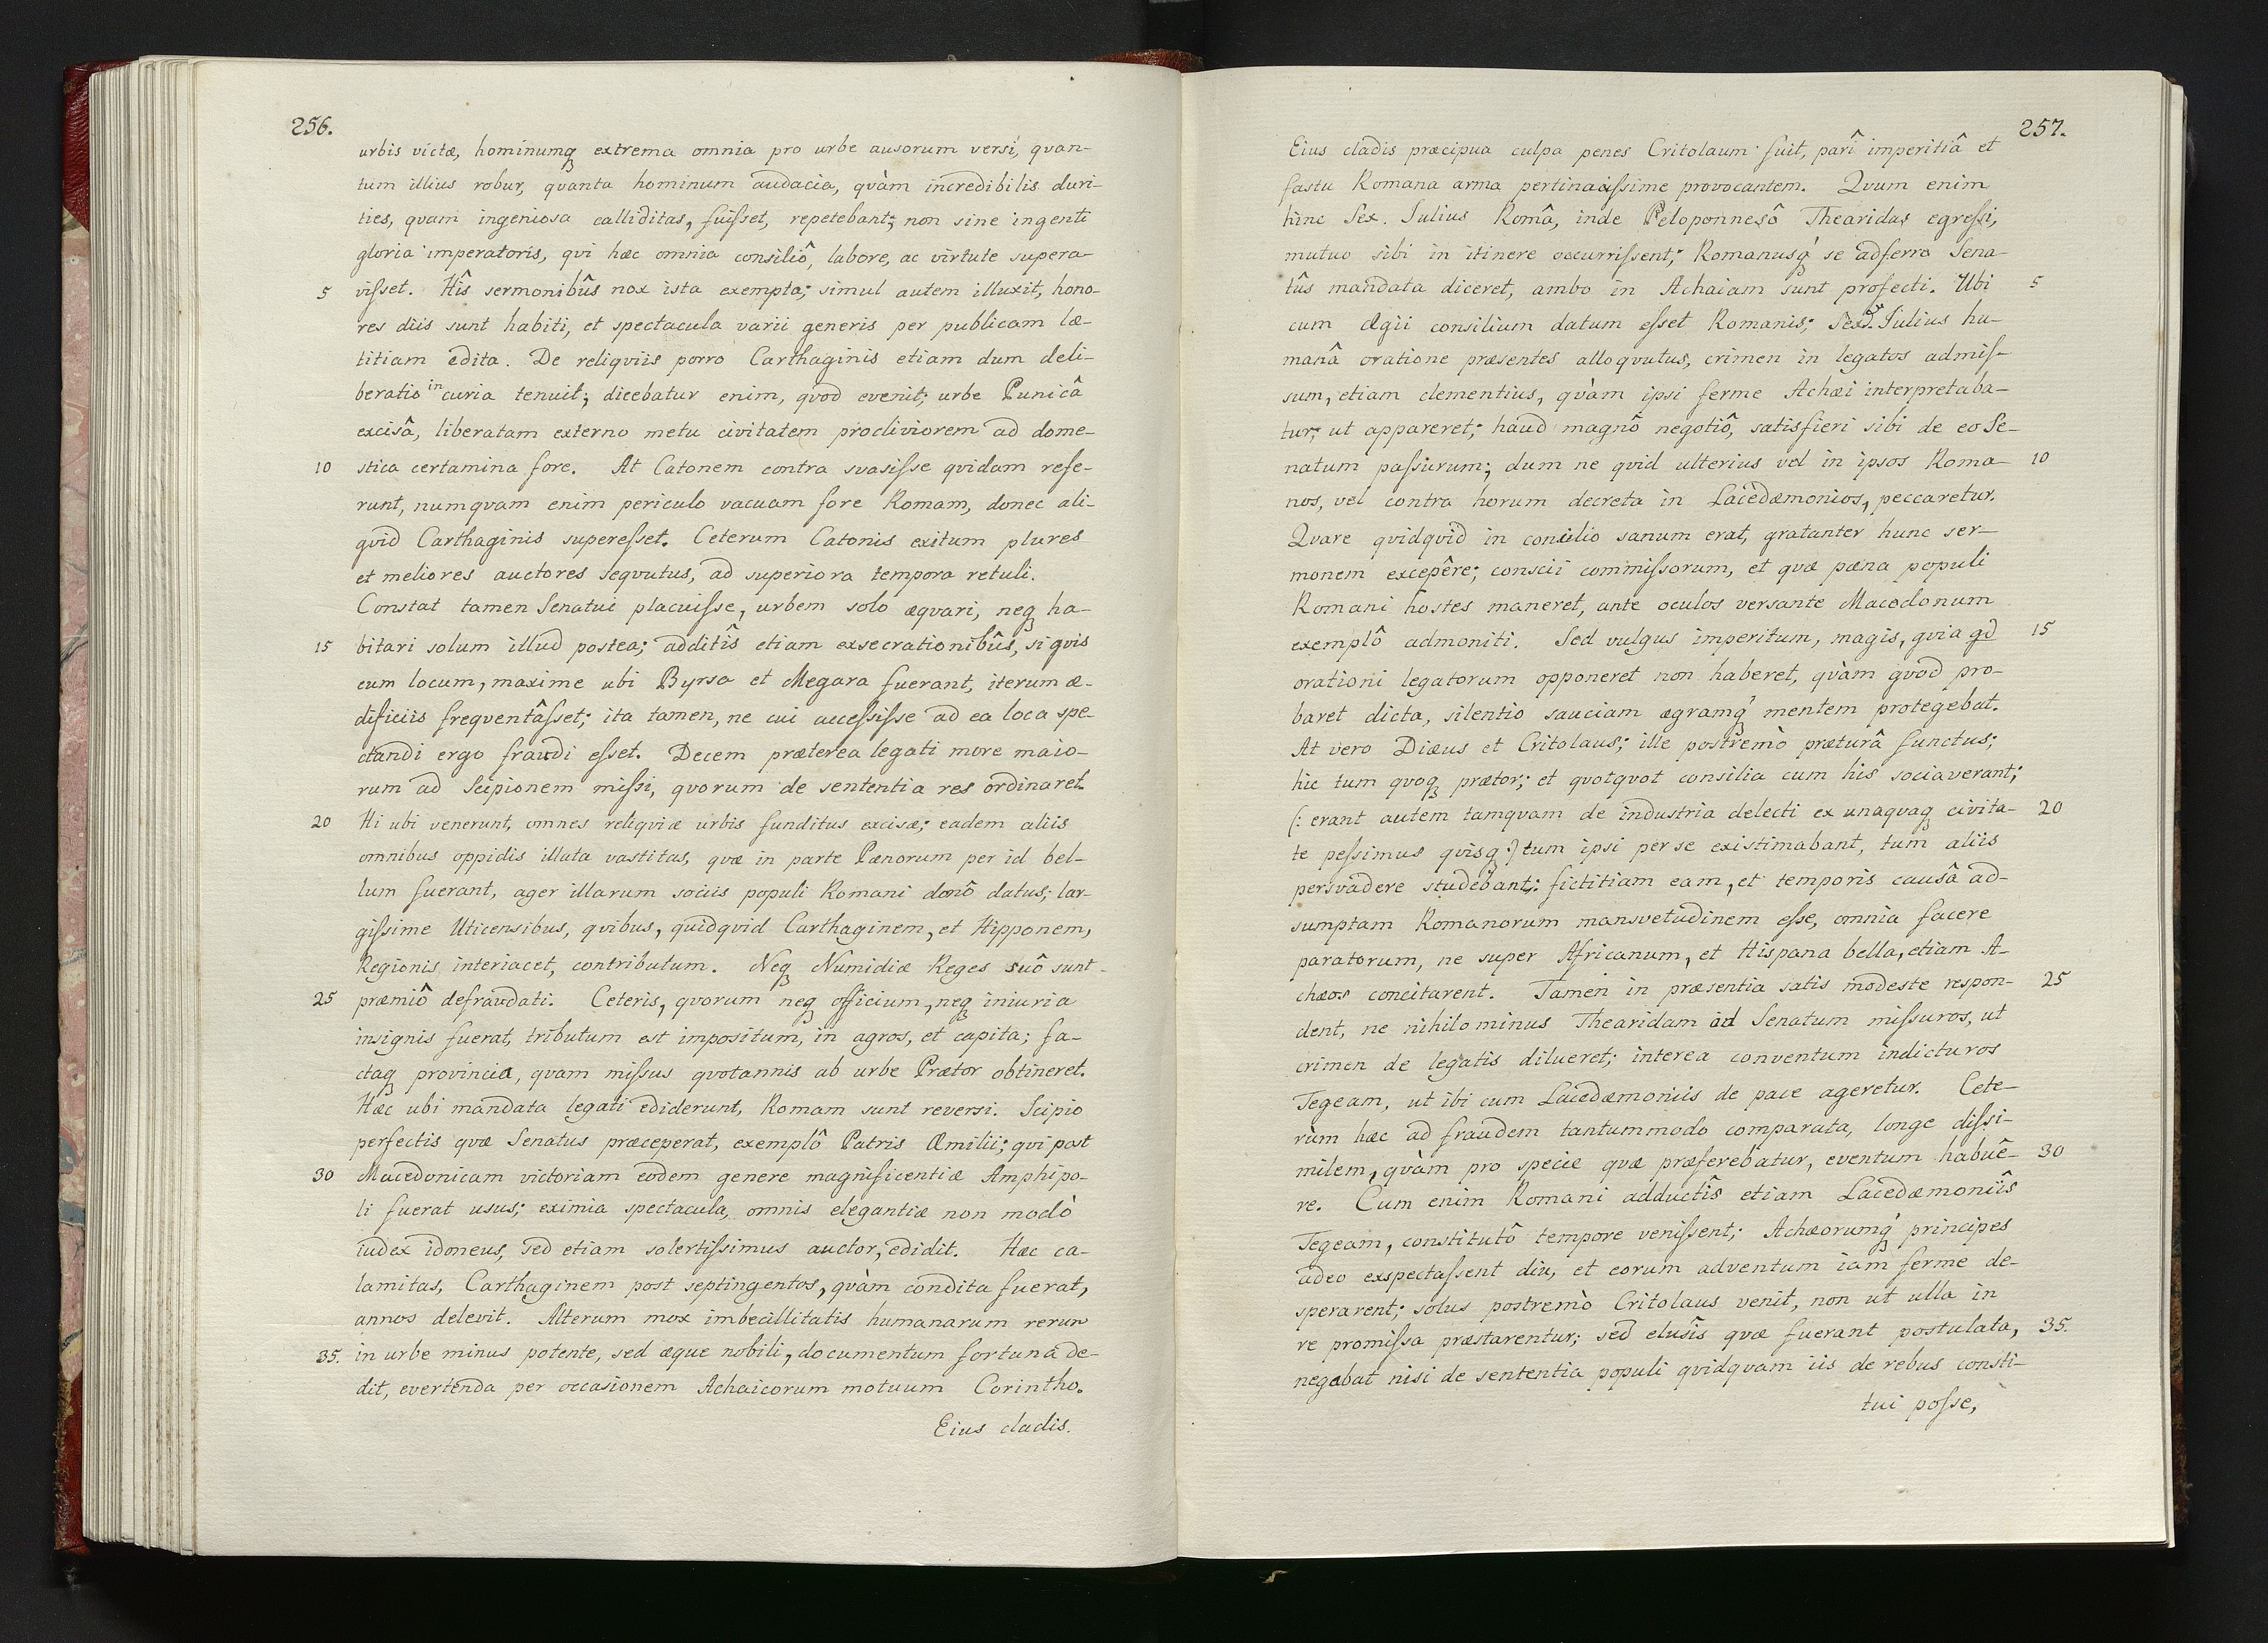 256.
urbis victæ, hominumq́ꝫ extrema omnia pro urbe ausorum versi, qvan-
tum illius robur, qvanta hominum audacia, qvàm incredibilis duri-
ties, qvam ingeniosa calliditas, fuiſset, repetebant; non sine ingenti
gloria imperatoris, qvi hæc omnia consiliô, labore, ac virtute supera-
5 viſset. Hîs sermonibûs nox ista exempta; simul autem illuxit, hono-
res diis sunt habiti, et spectacula varii generis per publicam læ-
titiam edita. De reliqviis porro Carthaginis etiam dum deli-
beratio in curia tenuit; dicebatur enim, qvod evenit; urbe Punicâ
excisâ, liberatam externo metu civitatem procliviorem ad dome-
10 stica certamina fore. At Catonem contra svasiſse qvidam refe-
runt, numqvam enim periculo vacuam fore Romam, donec ali-
qvid Carthaginis supereſset. Ceterum Catonis exitum plures
et meliores auctores seqvutus, ad superiora tempora retuli.
Constat tamen Senatui placuiſse, urbem solo æqvari, neqꝫ ha-
15 bitari solum illud postea; additîs etiam exsecrationibûs, si qvis
eum locum, maxime ubi Byrsa et Megara fuerant, iterum æ-
dificiis freqventâſset; ita tamen, ne cui acceſsiſse ad ea loca spe-
ctandi ergo fraudi eſset. Decem præterea legati more maio-
rum ad Scipionem miſsi, qvorum de sententia res ordinaret.
20 Hi ubi venerunt, omnes reliqviæ urbis funditus excisæ; eadem aliis
omnibus oppidis illata vastitas, qvæ in parte Pænorum per id bel-
lum fuerant, ager illarum sociis populi Romani donô datus; lar-
giſsime Uticensibus, qvibus, quidqvid Carthaginem, et Hipponem,
Regionis interiacet, contributum. Neqꝫ Numidiæ Reges suô sunt
25 præmiô defraudati. Ceteris, qvorum neqꝫ officium, neqꝫ iniuria
insignis fuerat, tributum est impositum, in agros, et capita; fa-
ctaqꝫ provincia, qvam miſsus qvotannis ab urbe Prætor obtineret.
Hæc ubi mandata legati ediderunt, Romam sunt reversi. Scipio
perfectis qvæ Senatus præceperat, exemplô Patris Æmilii; qvi post
30 Macedonicam victoriam eodem genere magnificentiæ Amphipo-
li fuerat usus; eximia spectacula, omnis elegantiæ non modò
iudex idoneus, sed etiam solertiſsimus auctor, edidit. Hæc ca-
lamitas, Carthaginem post septingentos, qvàm condita fuerat,
annos delevit. Alterum mox imbecillitatis humanarum rerum
35. in urbe minus potente, sed æque nobili, documentum fortuna de-
dit, evertenda per occasionem Achaicorum motuum Corintho.
Eius cladis.
257.
Eius cladis præcipua culpa penes Critolaum fuit, parî imperitiâ et
fastu Romana arma pertinaciſsime provocantem. Qvum enim
hinc Sex. Iulius Româ, inde Peloponnesô Thearidas egreſsi,
mutuo sibi in itinere occurriſsent; Romanusq́ se adferre Sena-
tûs mandata diceret, ambo in Achaiam sunt profecti. Ubi 5
cum Ægii consilium datum eſset Romanis; Sex. Iulius hu-
manâ oratione præsentes alloqvutus, crimen in legatos admiſ-
sum, etiam clementius, qvàm ipsi ferme Achæi interpretaba-
tur; ut appareret; haud magnô negotiô, satisfieri sibi de eo Se-
natum paſsurum; dum ne qvid ulterius vel in ipsos Roma- 10
nos, vel contra horum decreta in Lacedæmonios, peccaretur.
Qvare qvidqvid in consilio sanum erat, gratanter hunc ser-
monem excepêre; conscii commiſsorum, et qvæ pæna populi
Romani hostes maneret, ante oculos versante Macedonum
exemplô admoniti. Sed vulgus imperitum, magis, qvia qd 15
orationi legatorum opponeret non haberet, qvàm qvod pro-
baret dicta, silentio sauciam ægramq́ꝫ mentem protegebat.
At vero Diæus et Critolaus; ille postremò præturâ functus;
hic tum qvoqꝫ prætor; et qvotqvot consilia cum his sociaverant;
(: erant autem tamqvam de industria delecti ex unaqvaqꝫ civita- 20
te peſsimus qvisqꝫ :) tum ipsi per se existimabant, tum aliis
persvadere studebant: fictitiam eam, et temporis causâ ad-
sumptam Romanorum mansvetudinem eſse, omnia facere
paratorum, ne super Africanum, et Hispana bella, etiam A-
chæos concitarent. Tamen in præsentia satis modeste respon- 25
dent, ne nihilominus Thearidam ad Senatum miſsuros, ut
crimen de legatis dilueret; interea conventum indicturos
Tegeam, ut ibi cum Lacedæmoniis de pace ageretur. Cete-
rùm hæc ad fraudem tantummodo comparata, longe diſsi-
milem, qvàm pro specie qvæ præferebatur, eventum habuê- 30
re. Cum enim Romani adductîs etiam Lacedæmoniîs
Tegeam, constitutô tempore veniſsent; Achæorumq́ꝫ principes
adeo exspectaſsent diu, et eorum adventum iam ferme de-
sperarent; solus postremò Critolaus venit, non ut ulla in
re promiſsa præstarentur; sed elusîs qvæ fuerant postulata, 35.
negabat nisi de sententia populi qvidqvam iis de rebus consti-
tui poſse,